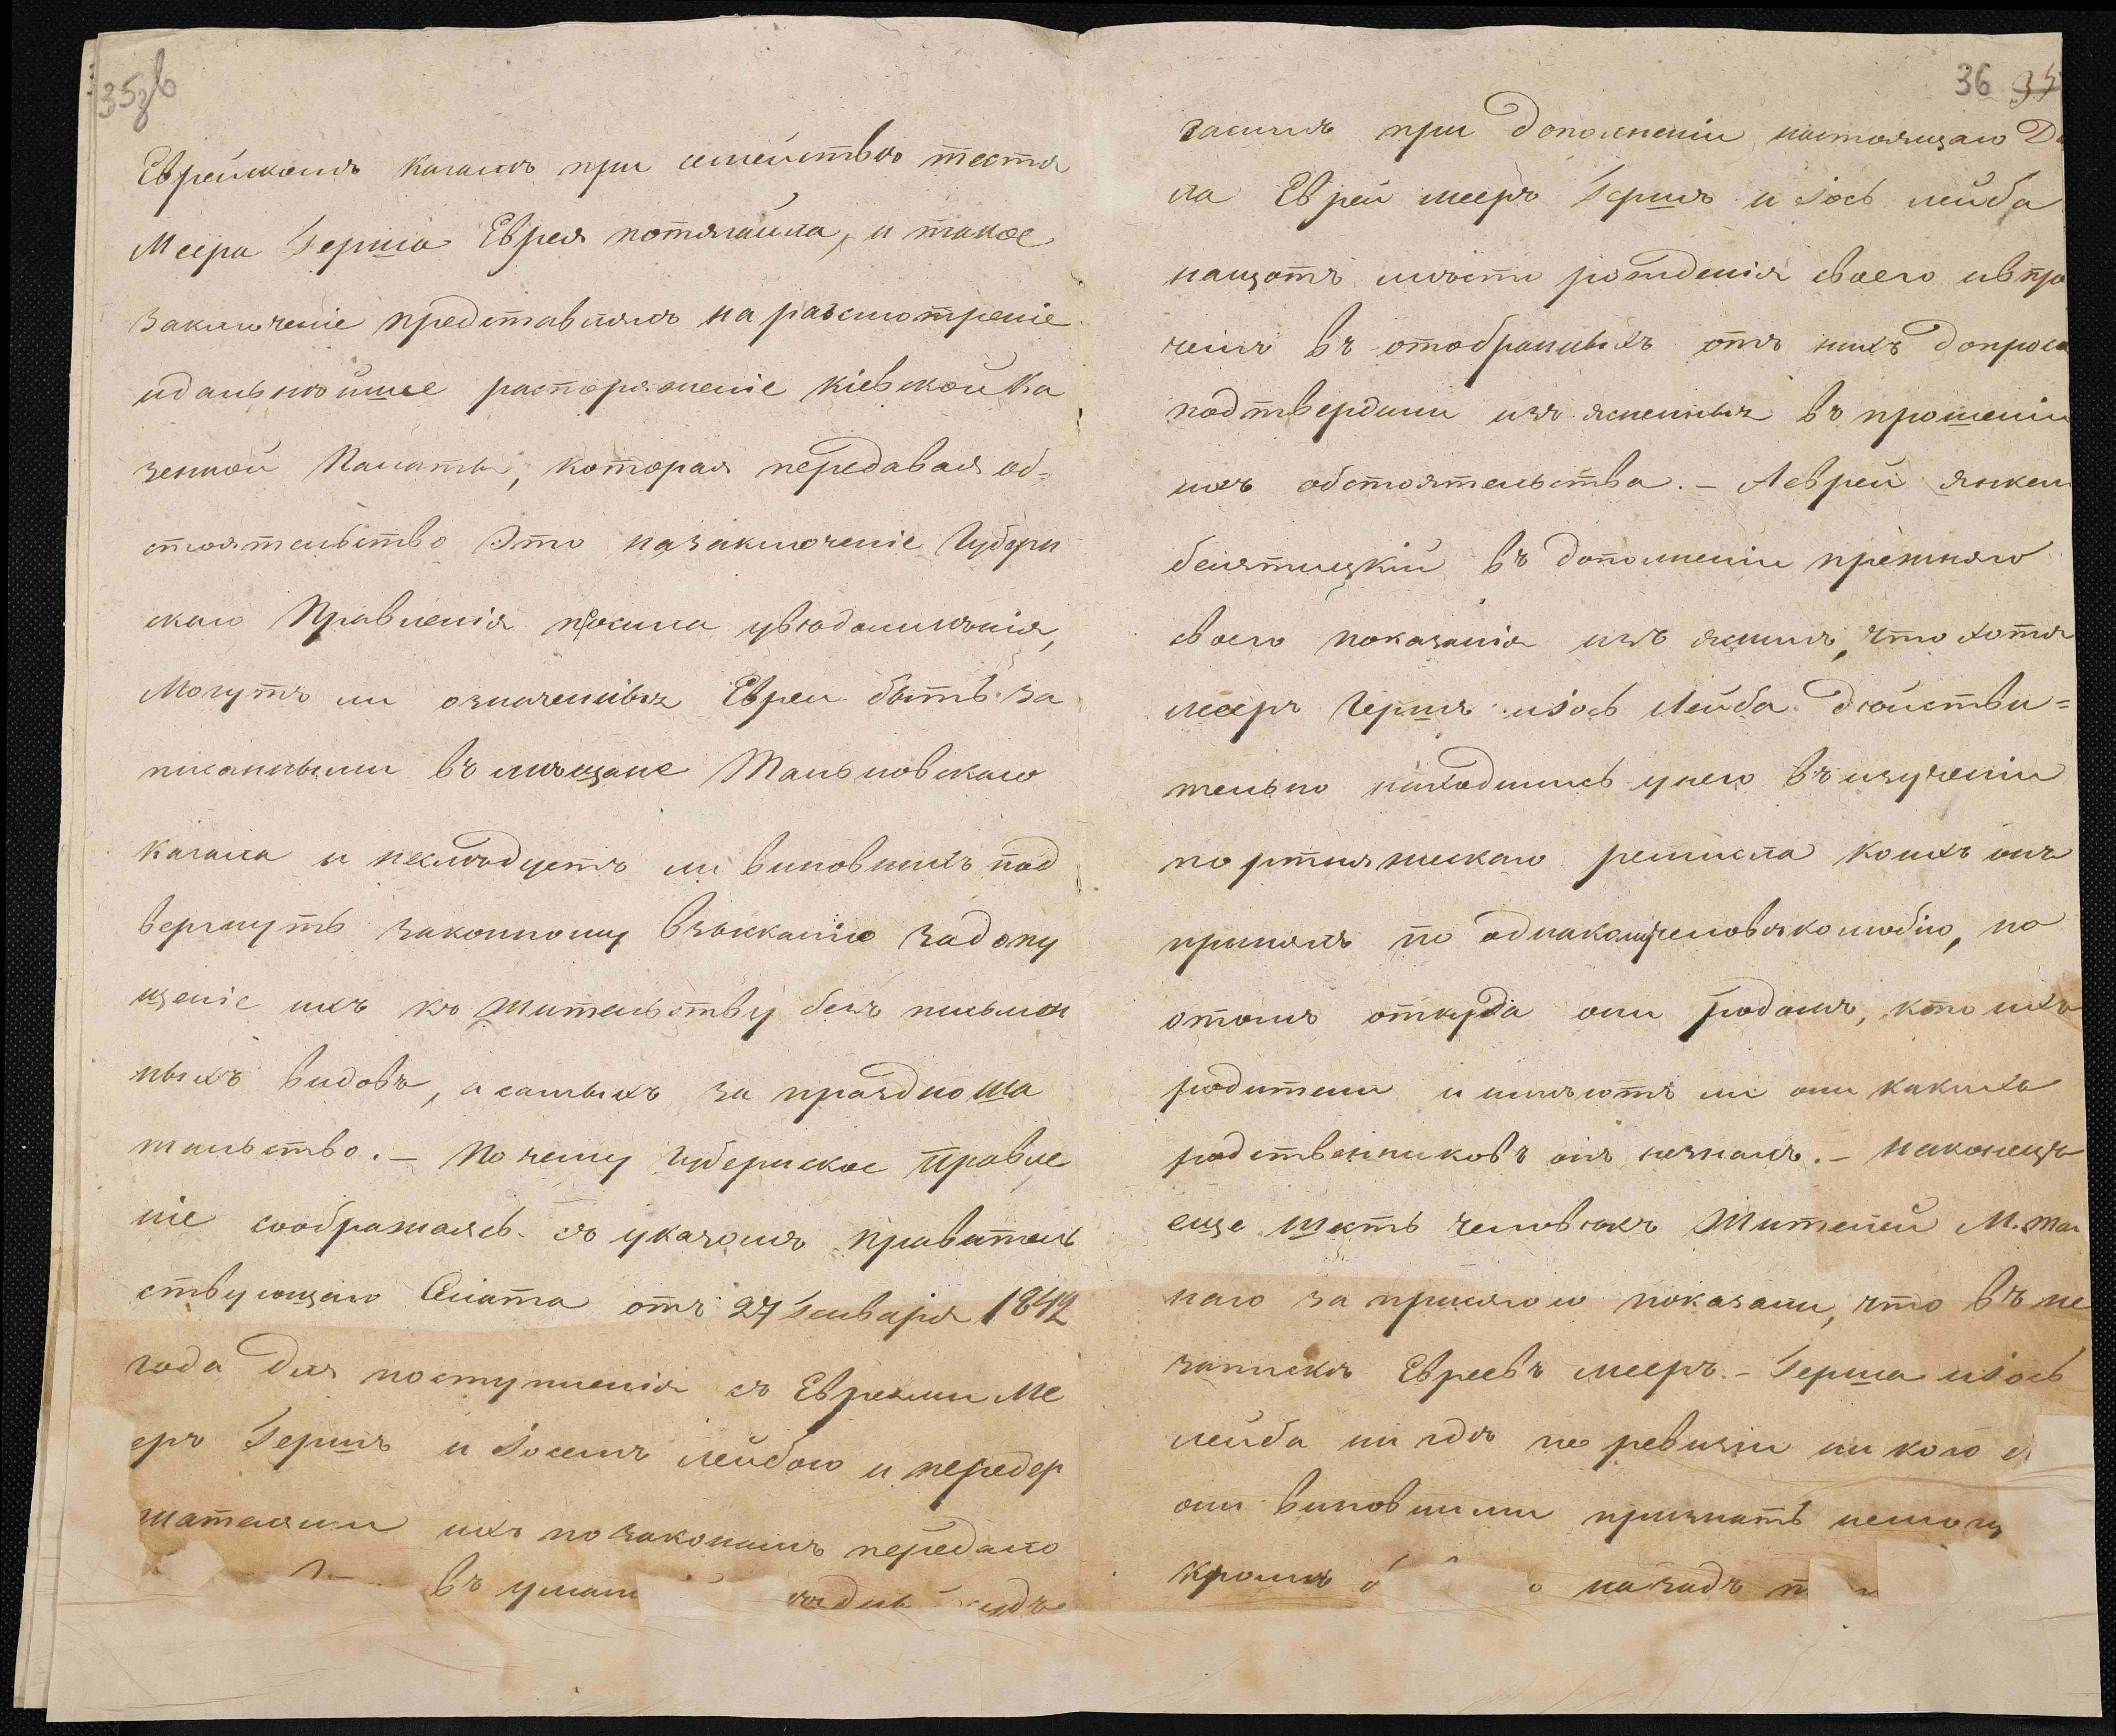 35 об
Еврейскомъ кагалѣ при семействѣ тестя
Меера Герша Еврея потягайла, и такое
заключеніе представлялъ на разсмотреніе
идальнѣйшее распоряженіе Кіевской Ка
зенной Палаты, которая передавая об=
стоятельство Это назаключеніе Губерн
скаго Правленія просила увѣдомленія,
Могутъ ли означенныя Евреи быть за
писанными въ мѣщане Тальновскаго
кагала и неслѣдуетъ ли виновныхъ под
вергнуть законному взысканію задопу
щеніе ихъ къ жительству безъ письмен
ныхъ видовъ, а самыхъ за праздноша
тальство. – По чему Губернское Правле
ніе соображаясь съ указомъ правитель
ствующаго Сената отъ 27 Генваря 1842
года для поступленія съ Евреями Ме
еръ Гершъ и Іосемъ лейбою и передер
жателями ихъ по законамъ передано
въ уман
36 35
засимъ при дополненіи настоящаго Дѣ
ла Евреи мееръ Гершъ и Іось лейба
нащотъ мѣста рожденія своего ивпро
чемъ въ отобранныхъ отъ нихъ допроса
подтвердили изъ ясненныя въ прошеніи
ихъ обстоятельства. – Аеврей янкель
белятицкій въ дополненіи прежняго
своего показанія изъ яснилъ, что хотя
мееръ Гершъ иІось Лейба дѣйстви=
тельно находились унего въ изученіи
портняжескаго ремисла коихъ онъ
принялъ по однакому человѣколюбію, но
отомъ откуда они родомъ, кто ихъ
родители и имѣютъ ли они какихъ
родственниковъ онъ незналъ. – Наконецъ
еще шесть человѣкъ жителей М. таль
наго за присягою показали, что въ не
запискѣ Евреевъ мееръ. – Герша иІось
лейба ни гдѣ по ревизіи ни кого
они виновными признать немогу
кромѣ назадъ